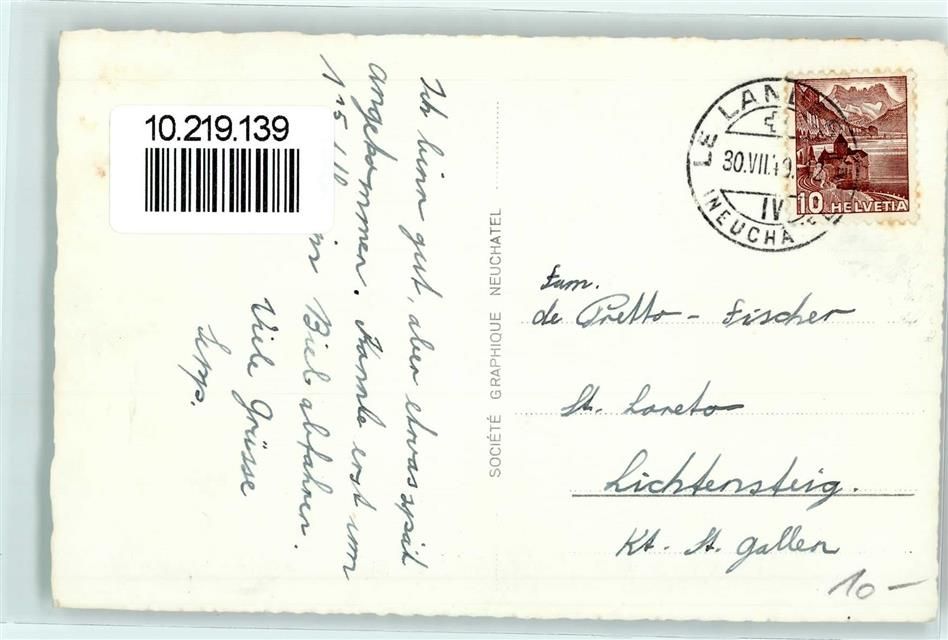 10.219.139
Ich binn gut, aber etwas spät
angekommen. Konnte erst um
in Biel abfahren.
Viele Grüsse
Sepp.
SOCIÉTÉ GRAPHIQUE NEUCHATEL
LE LAND
30.VII.49.
IV
(NEUCHA
10 HELVETIA
Fam.
de Pretto - Fischer
St. Loreto
Lichtensteig.
Kt. St. Gallen
10-